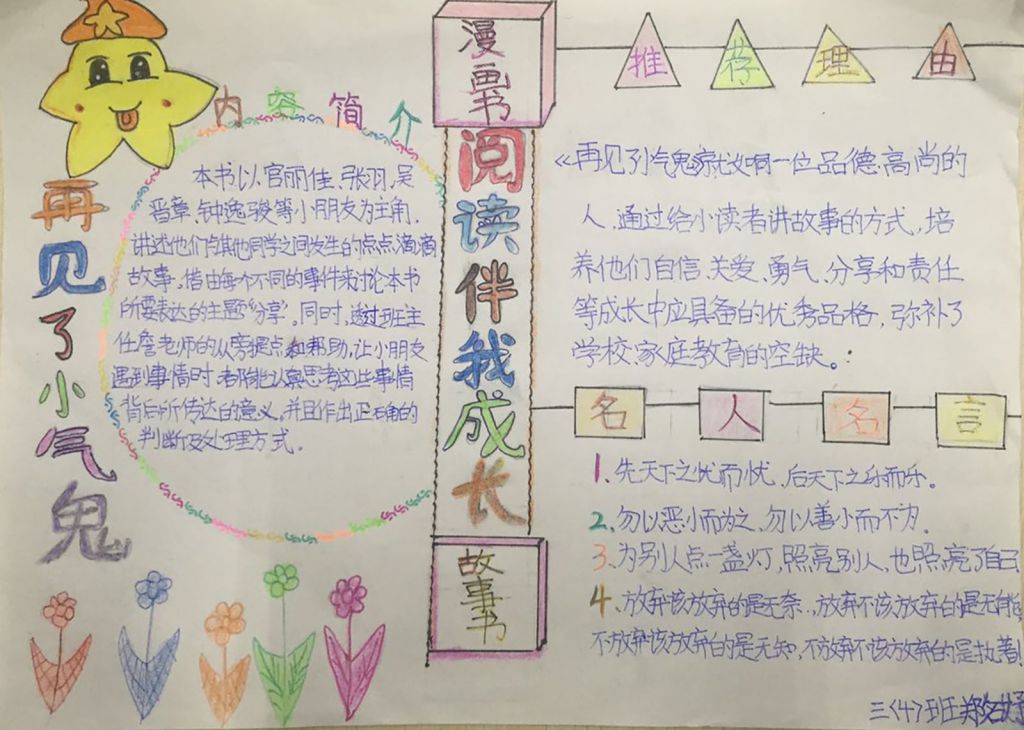 再见了小气鬼
内容简介
本书以官丽佳、张羽、吴
晋章、钟逸骏等小朋友为主角.
讲述他们与其他同学之间发生的点点滴滴
故事。借由每个不同的事件来讨论本书
所要表达的主题"分享"。同时,透过班主
任詹老师的从旁提点和帮助,让小朋友
遇到事情时,都能认真思考这些事情
背后所传达的意义,并且作出正确的
判断及处理方式.
漫画书
阅读伴我成长
故事书
推荐理由
《再见了小气鬼》就如一位品德高尚的
人,通过给小读者讲故事的方式,培
养他们自信、关爱、勇气、分享和责任
等成长中应具备的优秀品格,弥补了
学校、家庭教育的空缺。
名人名言
1.先天下之忧而忧,后天下之乐而乐。
2.勿以恶小而为之,勿以善小而不为.
3.为别人点一盏灯,照亮别人,也照亮了自己
4.放弃该放弃的是无奈,放弃不该放弃的是无能
不放弃该放弃的是无知,不放弃不该放弃的是执著!
三〈4〉班郑